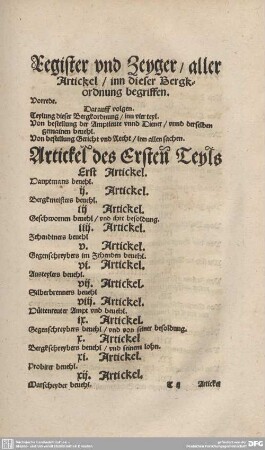 Register vnd Zeyger / aller
Artickel / inn dieser Bergk-
ordnung begriffen.
Vorrede.
Darauff volgen.
Teylung dieser Bergkordnung / inn vier teyl.
Von bestellung der Amptleute vnnd Diener / vnnd derselben
gemeinen beuehl.
Von bestellung Gericht vnd Recht / inn allen sachen.
Artickel des Ersten Teyls
Erst Artickel.
Hauptmans beuehl.
ij. Artickel.
Bergkmeisters beuehl.
iij Artickel.
Geschwornen beuehl / vnd ihre besoldung.
iiij. Artickel.
Zehendtners beuehl
v. Artickel.
Gegenschreybers im Zehenden beuehl.
vi. Artickel.
Austeylers beuehl.
vij. Artickel.
Silberbrenners beuehl
viij. Artickel.
Hüttenreuter Ampt vnd beuehl.
ix. Artickel.
Gegenschreybers beuehl / vnd von seiner besoldung.
x. Artickel
Bergkschreybers beuehl / vnd seinem lohn.
xi. Artickel.
Probirer beuehl.
xij. Artickel.
Marscheyder beuehl.
Artickel
DFG